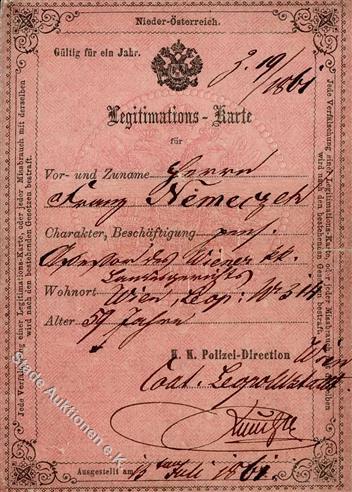 Nieder-Österreich.
Gültig für ein Jahr.
Z. 19/1861
Legitimations-Karte
für
Vor- und Zuname Herrn
Franz Němeczek
Charakter, Beschäftigung pens.
des Wiener kk.
Landesgerichts
Wohnort Wien, Leop: № 314
Alter 59 Jahre
K. K. Polizei-Direction Wien
Leopoldstadt
Ausgestellt am Juli 1861
Jede Verfälschung einer Legitimations-Karte, oder jeder Missbrauch mit derselben
wird nach den bestehenden Gesetzen bestraft.
Jede Verfälschung einer Legitimations-Karte, oder jeder Missbrauch mit derselben
wird nach den bestehenden Gesetzen bestraft.
Stade Auktionen e.K